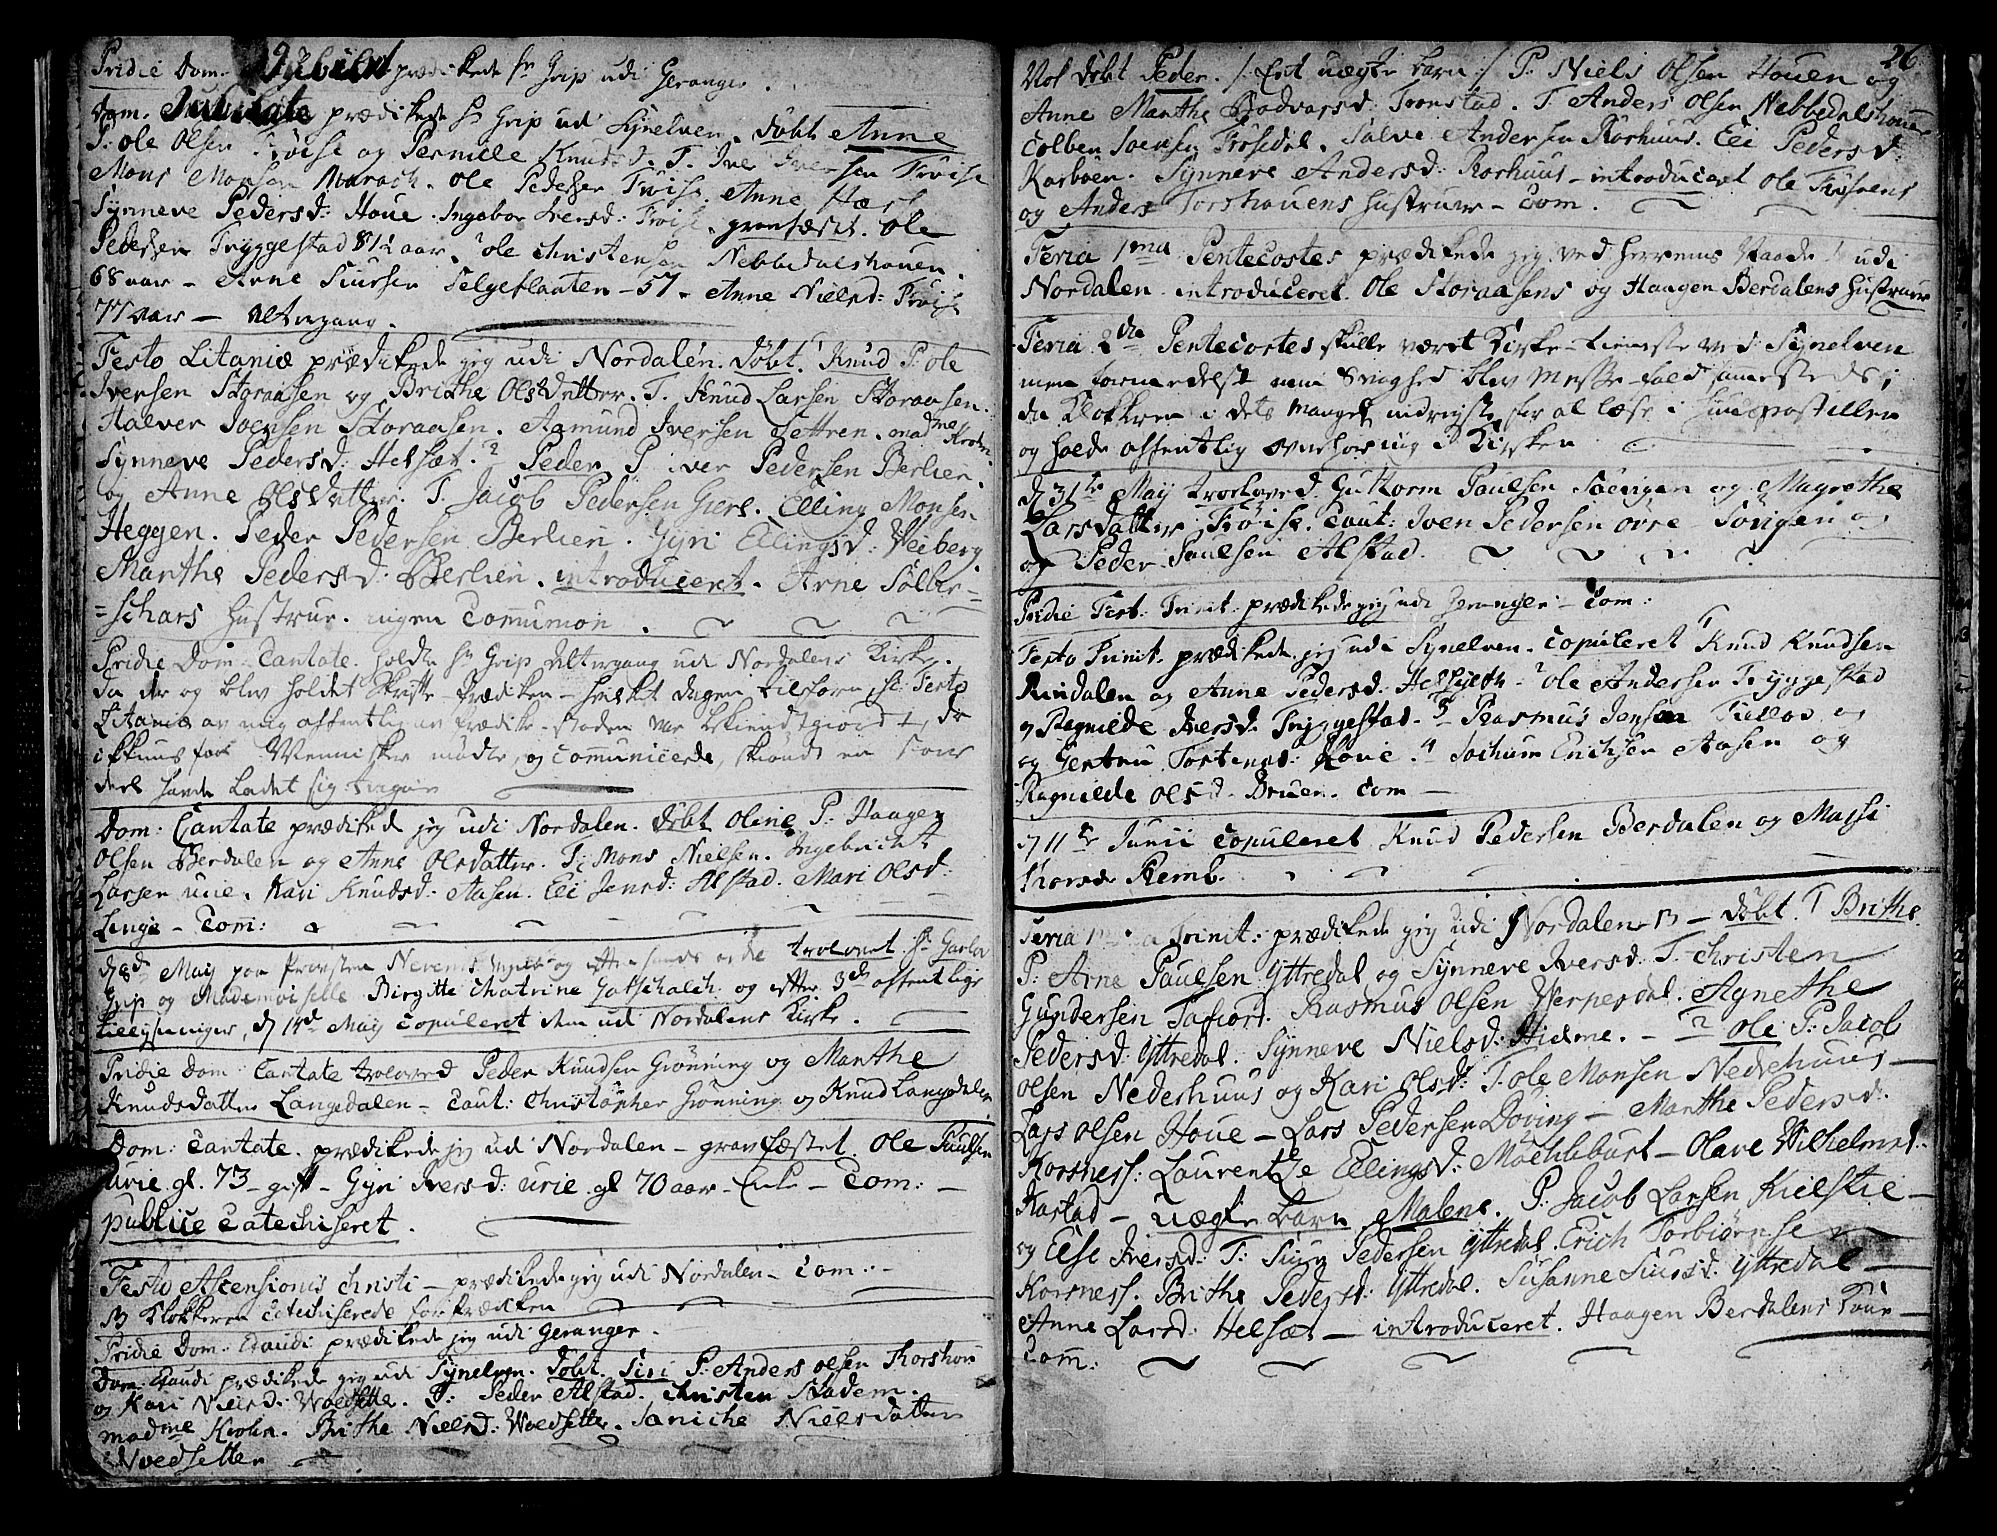 Pridie Dom. Jubilat prædikede hr Grip udi Geranger.
Dom. Jubilate prædikede hr Grip udi Synelven. døbt Anne
P: ole Olsen Frøise og Pernille Knudsd. T. Ive Iversen Frøise
Mons Monsen Maroch. ole Pedersen Frøise. Anne
Synneve Pedersd: Houe. Ingebor Iversd: Frøise. gravfæstet. Ole
Pedersen Tryggestad 81½ aar. 2 ole Christensen Nebbedalshouen.
68 aar - Arne Siursen Selgeflaaten - 57. Anne Nielsd: Frøise
77 aar - Altergang.
Festo Litaniæ prædikede jeg udi Nordalen. døbt 1 Knud P: ole
Iversen Storaasen og Brithe Olsdatter. T. Knud Larsen Storaasen.
Halver Joensen Storaasen. Aamund Iversen Settren. madme Krohn.
Synneve Pedersd: Helsæt. 2 Peder P iver Pedersen Berlien
og Anne Olsdatter. T. Jacob Pedersen Giere. Elling Monsen
Heggen. Peder Pedersen Berlien. Gyri Ellingsd: Veiberg
Marthe Pedersd: Berlien. introduceret. Arne Sølber=
=schars Hustrue. ingen Communion.
Pridie Dom. Cantate. holdte hr Grip Altergang udi Nordalens Kirke.
da der og blev holdet Skrifte-Prædiken - hvilket dagen tilforn, sc: Festo
Litaniæ av mig offentlig av Prædike-stolen var bekiendtgiord, da
ikkuns faa Mennisker mødte, og communicerede, skiøndt en stoer
deel havde ladet sig
Dom: Cantate prædikede jeg udi Nordalen. døbt Oline P: Haagen
Olsen Berdalen og Anne Olsdatter. T: Mons Nielsen. Ingebricht
Larsen urie. Kari Knudsd: Aasen. Eli Jensd: Alstad. Mari Olsd:
Linge - Com:
d 8de May paa Provsten orde trolovet hr Garlov
Grip og Mademoiselle Birgitte Chatrine Gotschalch. og efter 3de offentlige
tillysninger, d 14de May copuleret dem udi Nordalens Kirke.
Pridie Dom: Cantate troloved Peder Knudsen Grønning og Marthe
Knudsdatter Langedalen - Caut: Christopher Grønning og Knud Langedalen
Dom: Cantate. prædikede jeg udi Nordalen - gravfæstet. Ole Paulsen
urie gl. 73 - gift - Gyri Iversd: urie gl 70 aar - Com: -
publice Catechiseret.
Festo Ascensionis Christi - prædikede jeg udi Nordalen - Com: -
NB Klokkeren Catechiserede før Prædiken
Pridie Dom. Exaudi prædikede jeg udi Geranger.
Dom: Exaudi prædikede jeg udi Synelven. døbt. Siri P: Anders Olsen Korshou
og Kari Nielsd: Woldsette. T: Peder Alstad. Christen Stadem.
madme Krohn. Brithe Nielsd: Woldsetter. Janiche Nielsdatter
Woedsetter
26.
Vol døbt Peder. /: Ett uægte barn :/ P. Niels Olsen Houen og
Anne Marthe Bodvarsd: Tronstad. T. Anders Olsen Nebbedalshouen
Colben Joensen Frøsedal. Salve Andersen Korhuus. Eli Pedersd:
Karbøen. Synneve Andersd: Rorhuus - introduceret Ole
og Anders Torshouens Hustruer - Com.
Feria 1ma Pentecostes prædikede jeg ved Herrens Naade udi
Nordalen. introduceret. Ole Storaasens og Haagen Berdalens Hustruer
Feria 2da Pentecostes skulle været Kirke-tieneste ved Synelven
men formedelst min Svaghed blev Messe-fald sammesteds;
da Klokkeren i dets mangel maatte for al læse i Huuspostillen
og holde offentlig overhøring i Kirken
d 31te May troloved. Guttorm Paulsen Søvigen og Magrethe
Larsdatter Frøise. Caut: Iven Pedersen øvre Søvigen og
og Peder Paulsen Alstad.
Pridie Fest: Trinit: prædikede jeg udi Geranger - Com:
Festo Trinit. prædikede jeg udi Synelven. Copuleret 1 Knud Knudsen
Rindalen og Anne Pedersd: Hellsyeth - 2 ole Andersen Tryggestad
og Ragnilde Iversd: Tryggestad - 3 Rasmus Jensen Fielloe og
og Gertru Tostensd: Houe. 4 Jochum Erichsen Aasen og
Ragnilde Olsd. Bruen. Com -
d 11te Junii copuleret Knud Pedersen Berdalen og Massi
Remb.
Feria 1ma Trinit: prædikede jeg udi Nordalen NB - døbt. 1 Brithe
P: Arne Paulsen Yttredal og Synneve Iversd: T. Christen
Gundersen Tafiord. Rasmus Olsen Verpesdal. Agnethe
Pedersd: Yttredal. Synneve Nielsd: Hielme. - 2 ole P: Jacob
Olsen Nederhuus og Kari Olsd: T: ole Monsen Nedrehuus -
Lars Olsen Houe - Lars Pedersen Døving - Marthe Pedersd:
Korsness: Laurentze Ellingsd: Mæhleburt - Olave Vilhelmsd:
Kastad - uægte barn Malene. P: Jacob Larsen Kielstie -
og Else Iversd: T: Siur Pedersen Yttredal. Erich Torbiørnse
Korsness. Brithe Pedersd: Yttredal. Susanne Siursd: Yttredal
Anne Larsd: Helsæt - introduceret. Haagen Berdalens Kone -
Com: